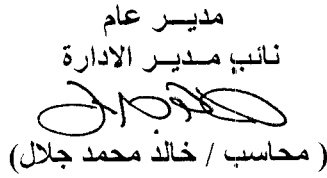 مديـــر عام
نائب مـديـر الادارة
( محاسب / خالد محمد جلال)